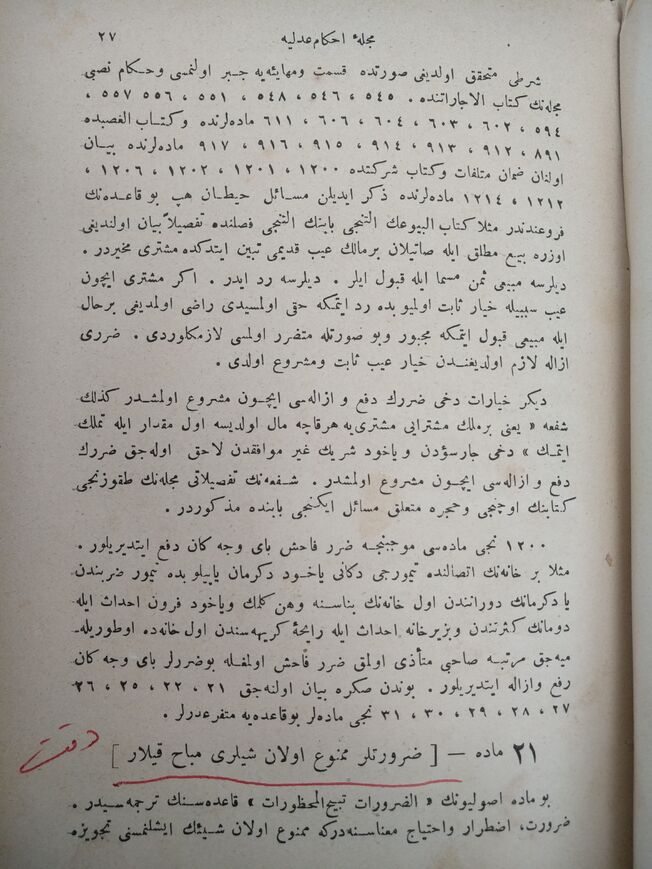 مجلهٔ احكام عدليه ٢٧
شرطى متحقق اولديغى صورتده قسمت ومهايئه‌يه جبر اولنمسى وحكام نصبى
مجله‌نك كتاب الاجاراتنده . ٥٤٥ ، ٥٤٦ ، ٥٤٨ ، ٥٥١ ، ٥٥٦ ٥٥٧ ،
٥٩٤ ، ٦٠٢ ، ٦٠٣ ، ٦٠٤ ، ٦٠٦ ، ٦١١ ماده‌لرنده وكتاب الغصبده
٨٩١ ، ٩١٢ ، ٩١٣ ، ٩١٤ ، ٩١٥ ، ٩١٦ ، ٩١٧ ماده‌لرنده بيان
اولنان ضمان متلفات وكتاب شركتده ١٢٠٠ ، ١٢٠١ ، ١٢٠٢ ، ١٢٠٦ ،
١٢١٢ ، ١٢١٤ ماده‌لرنده ذكر ايديلن مسائل حيطان هپ بو قاعده‌نك
فروعندندر مثلا كتاب البيوعك التنجى بابنك التنجى فصلنده تفصيلاً بيان اولنديغى
اوزره بيع مطلق ايله صاتيلان برمالك عيب قديمى تبين ايتدكده مشترى مخيردر .
ديلرسه مبيعى ثمن مسما ايله قبول ايلر . ديلرسه رد ايدر . اكر مشترى ايچون
عيب سببيله خيار ثابت اولميو بده رد ايتمكه حقى اولمسيدى راضى اولمديغى برحال
ايله مبيعى قبول ايتمكه مجبور وبو صورتله متضرر اولمسى لازمكلوردى . ضررى
ازاله لازم اولديغندن خيار عيب ثابت ومشروع اولدى .
ديكر خيارات دخى ضررك دفع و ازاله‌سى ايچون مشروع اولمشدر كذلك
شفعه « يعنى برملك مشترايى مشترى‌يه هرقاچه مال اولديسه اول مقدار ايله تملك
ايتمك » دخى جارسوٴدن وياخود شريك غير موافقدن لاحق اوله‌جق ضررك
دفع و ازاله‌سى ايچون مشروع اولمشدر . شفعه‌نك تفصيلاتى مجله‌نك طقوزنجى
كتابنك اوچنجى وحجره متعلق مسائل ايكنجى بابنده مذكوردر .
١٢٠٠ نجى ماده‌سى موجبنجه ضرر فاحش باى وجه كان دفع ايتديريلور .
مثلا بر خانه‌نك اتصالنده تيمورجى دكانى ياخود دكرمان ياپيلو بده تيمور ضربندن
يا دكرمانك دوراننده اول خانه‌نك بناسنه وهن كلمك وياخود فرون احداث ايله
دومانك كثرتندن وبزيرخانه احداث ايله رايحهٔ كريهه‌سندن اول خانه‌ده اوطوريله‌
ميه‌جق مرتبه صاحبى متأذى اولمق ضرر فاحش اولمغله بوضررلر باى وجه كان
رفع وازاله ايتديريلور . بوندن صكره بيان اولنه‌جق ٢١ ، ٢٢ ، ٢٥ ، ٢٦
٢٧ ، ٢٨ ، ٢٩ ، ٣٠ ، ٣١ نجى ماده‌لر بوقاعده‌يه متفرعدرلر .
دقت
٢١ ماده — [ ضرورتلر ممنوع اولان شيلرى مباح قيلار ]
بو ماده اصوليونك « الضرورات تبيح المحظورات » قاعده‌سنك ترجمه‌سيدر .
ضرورت، اضطرار واحتياج معناسنه‌دركه ممنوع اولان شيئك ايشلنمسنى تجويزه